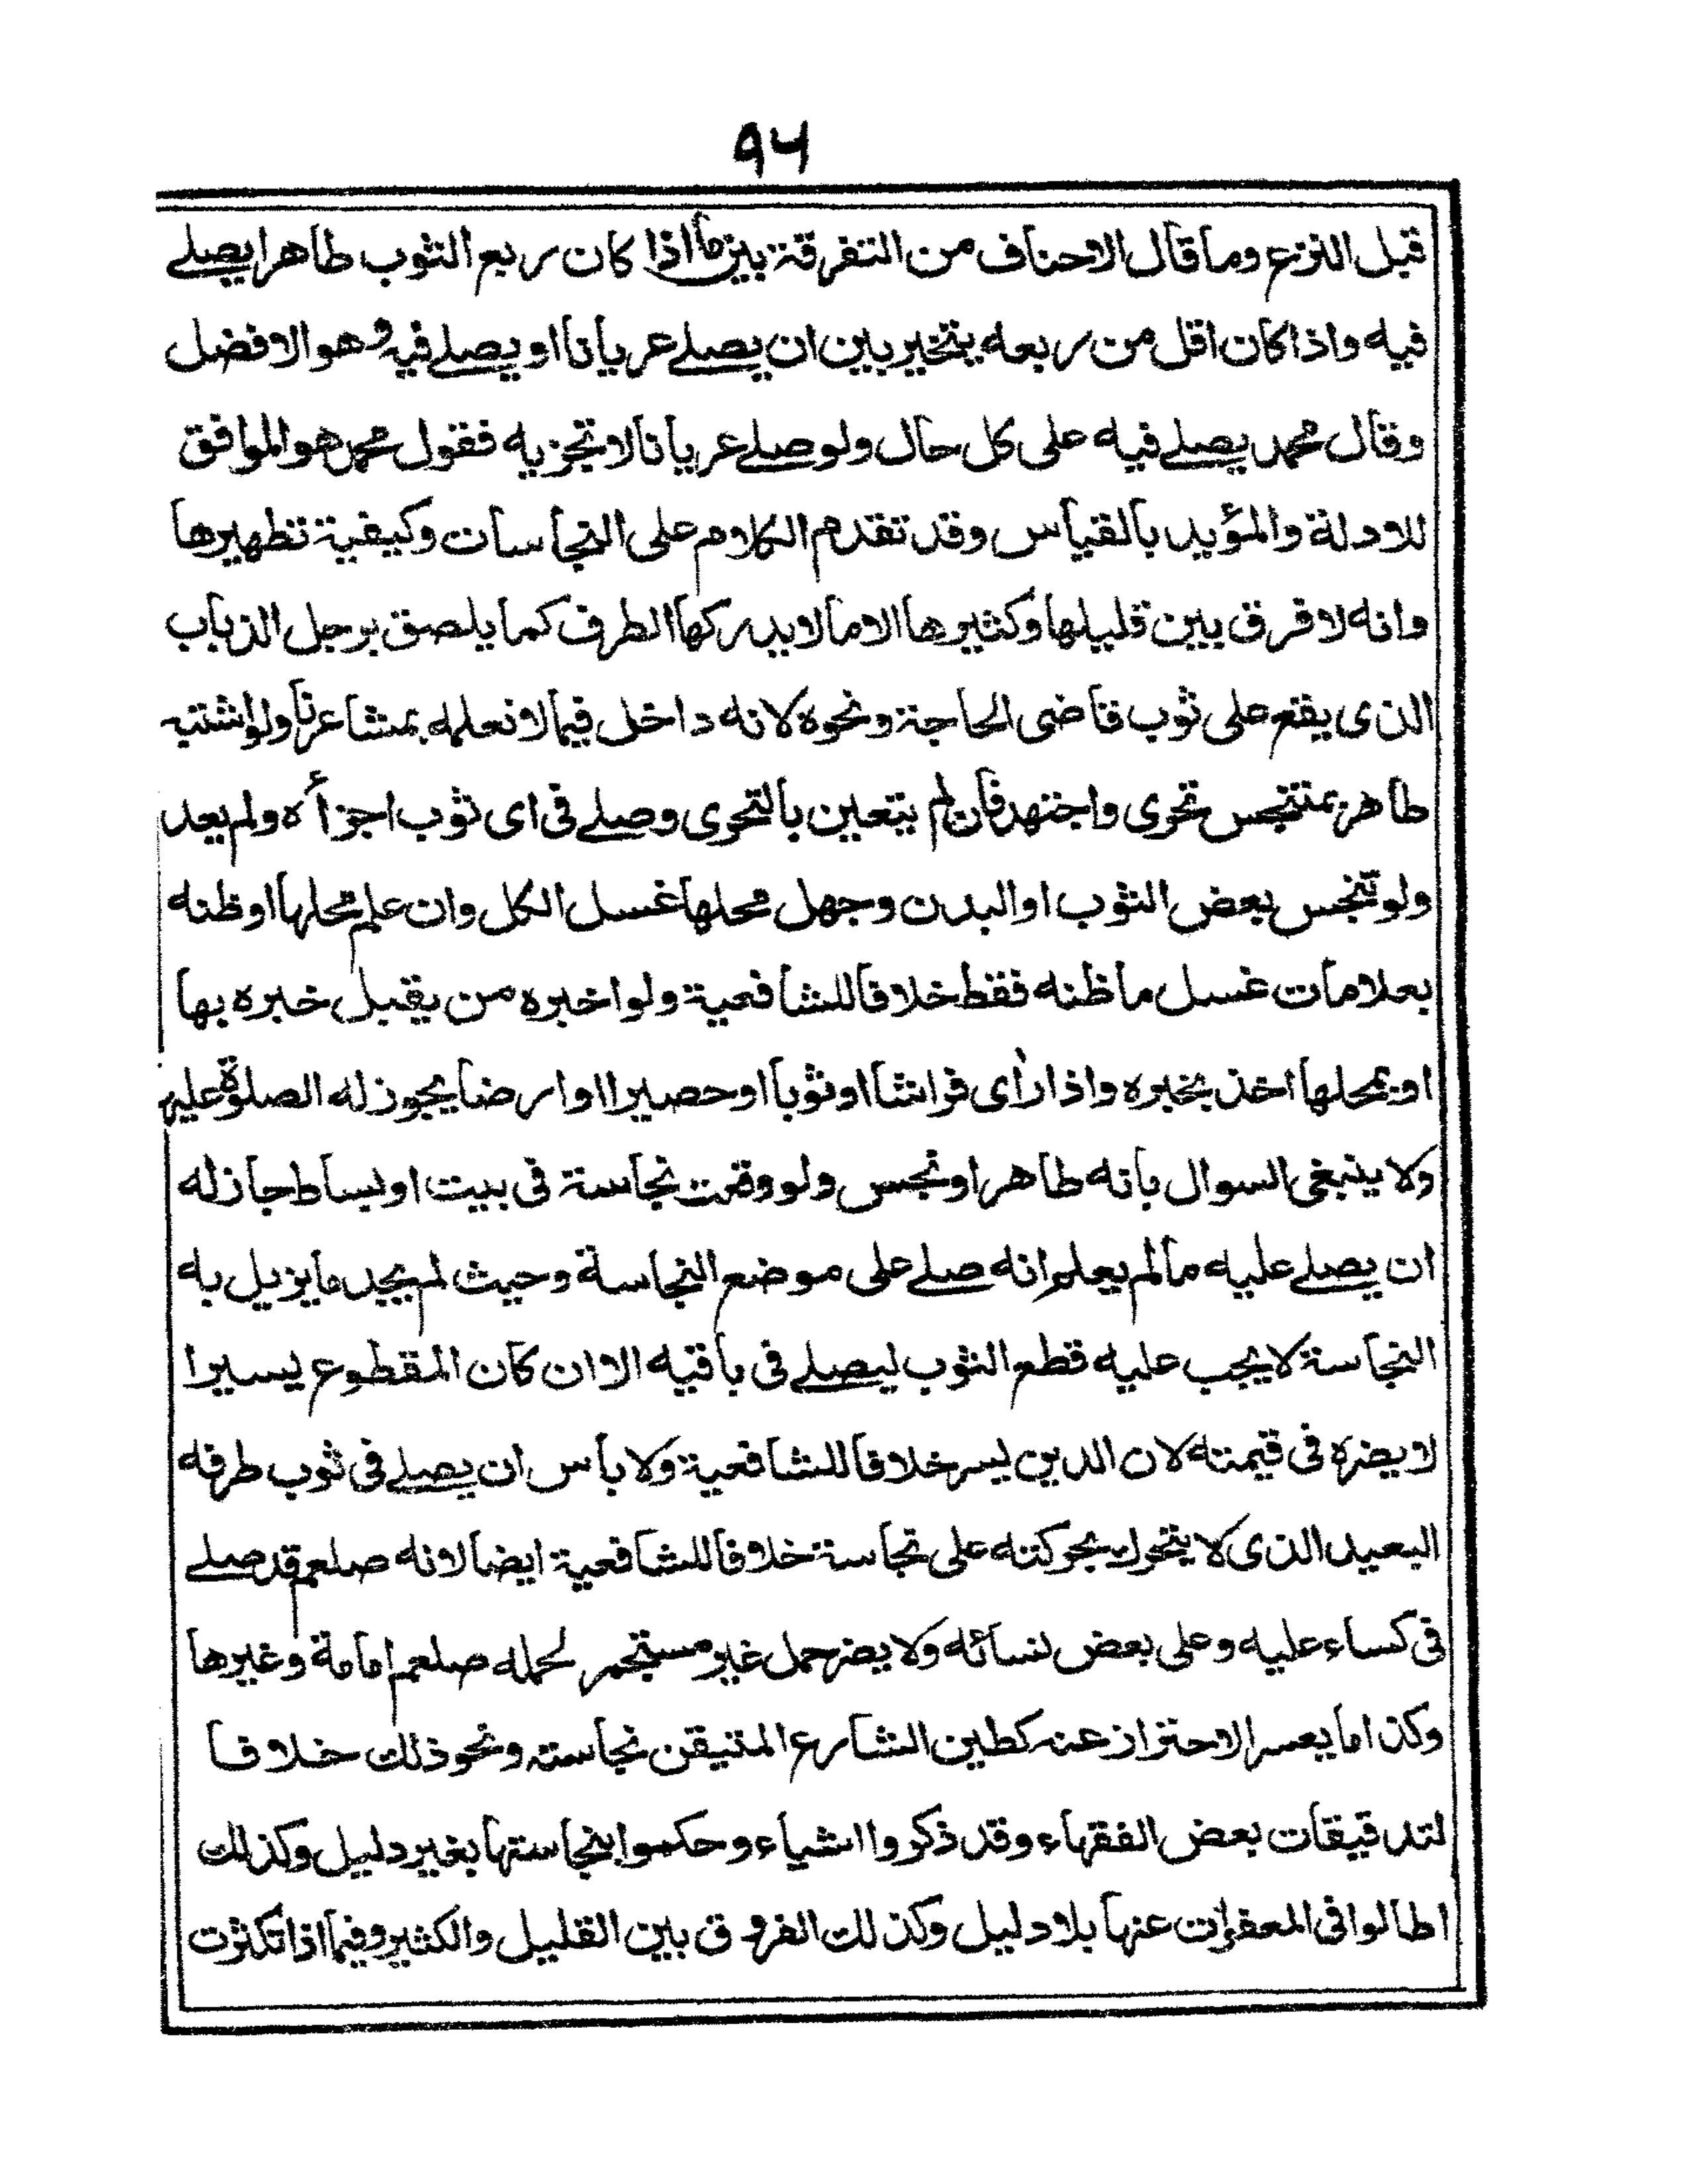 ۹۴
قبل النزع وما قال الاحناف من التفرقة بين ما اذا كان ربع الثوب طاهرا يصلے
فيه واذا كان اقل من ربعه يتخير بين ان يصلے عريانا او يصلے فيه وهو الافضل
وقال محمد يصلے فيه على كل حال ولو صلے عريانا لا تجزيه فقول محمد هو الموافق
للادلة والمؤيد بالقياس وقد تقدم الكلام على النجاسات وكيفية تطهيرها
وانه لا فرق بين قليلها وكثيرها الا ما لا يدركها الطرف كما يلصق برجل الذباب
الذى يقع على ثوب قاضى الحاجة ونحوه لانه داخل فيما لا نعلمه بمشاعرنا ولو اشتبه
طاهر بمتنجس تحرى واجتهد فان لم يتعين بالتحرى وصلے فى اى ثوب اجزأه ولم يعد
ولو تنجس بعض الثوب او البدن وجهل محلها غسل الكل وان علم محلها او ظنه
بعلامات غسل ما ظنه فقط خلافا للشافعية ولو اخبره من يقبل خبره بها
او بمحلها اخذ بخبره واذا رأى فراشا او ثوبا او حصيرا او ارضا يجوز له الصلوة عليه
ولا ينبغى السوال بانه طاهر او نجس ولو وقعت نجاسة فى بيت او بساط جاز له
ان يصلے عليه ما لم يعلم انه صلے على موضع النجاسة وحيث لم يجد ما يزيل به
النجاسة لا يجب عليه قطع الثوب ليصلے فى باقيه الا ان كان المقطوع يسيرا
لا يضره فى قيمته لان الدين يسر خلافا للشافعية ولا بأس ان يصلے فى ثوب طرفه
البعيد الذى لا يتحول بحركته على نجاسة خلافا للشافعية ايضا لانه صلعم قد صلے
فى كساء عليه وعلى بعض نسائه ولا يضر حمل غير مستجمر لحمله صلعم امامة وغيرها
وكذا ما يعسر الاحتراز عنه كطين الشارع المتيقن نجاسته ونحو ذلك خلافا
لتدقيقات بعض الفقهاء وقد ذكروا اشياء وحكموا بنجاستها بغير دليل وكذلك
اطالوا فى المعفوات عنها بلا دليل وكذلك الفروق بين القليل والكثير وفيما اذا تكثرت